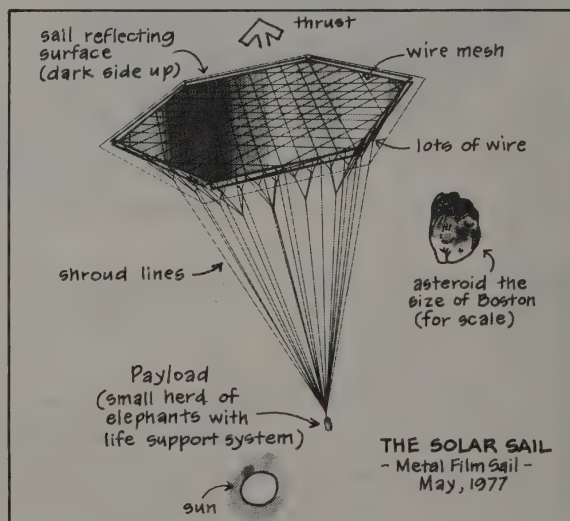 thrust
sail reflecting
surface
(dark side up)
wire mesh
lots of wire
shroud lines
asteroid the
size of Boston
(for scale)
Payload
(small herd of
elephants with
life support system)
sun
THE SOLAR SAIL
- Metal Film Sail -
May, 1977